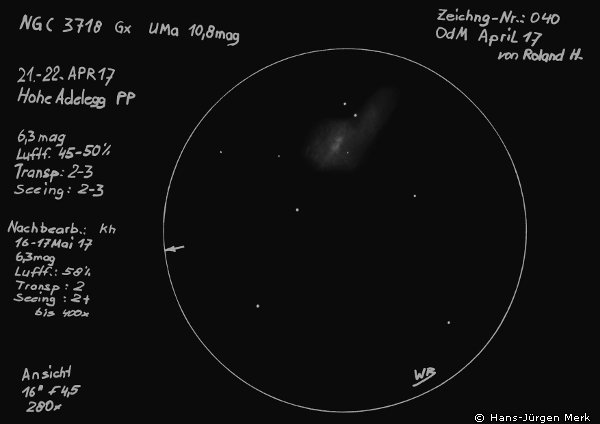 NGC 3718 Gx UMa 10,8mag
Zeichng-Nr.: 040
OdM April 17
von Roland H.
21.-22. APR 17
Hohe Adelegg PP
6,3 mag
Luftf. 45-50%
Transp: 2-3
Seeing: 2-3
Nachbearb.: kh
16-17 Mai 17
6,3mag
Luftf.: 58%
Transp: 2
Seeing: 2+
bis 400x
Ansicht
16" f4,5
280x
WB
© Hans-Jürgen Merk